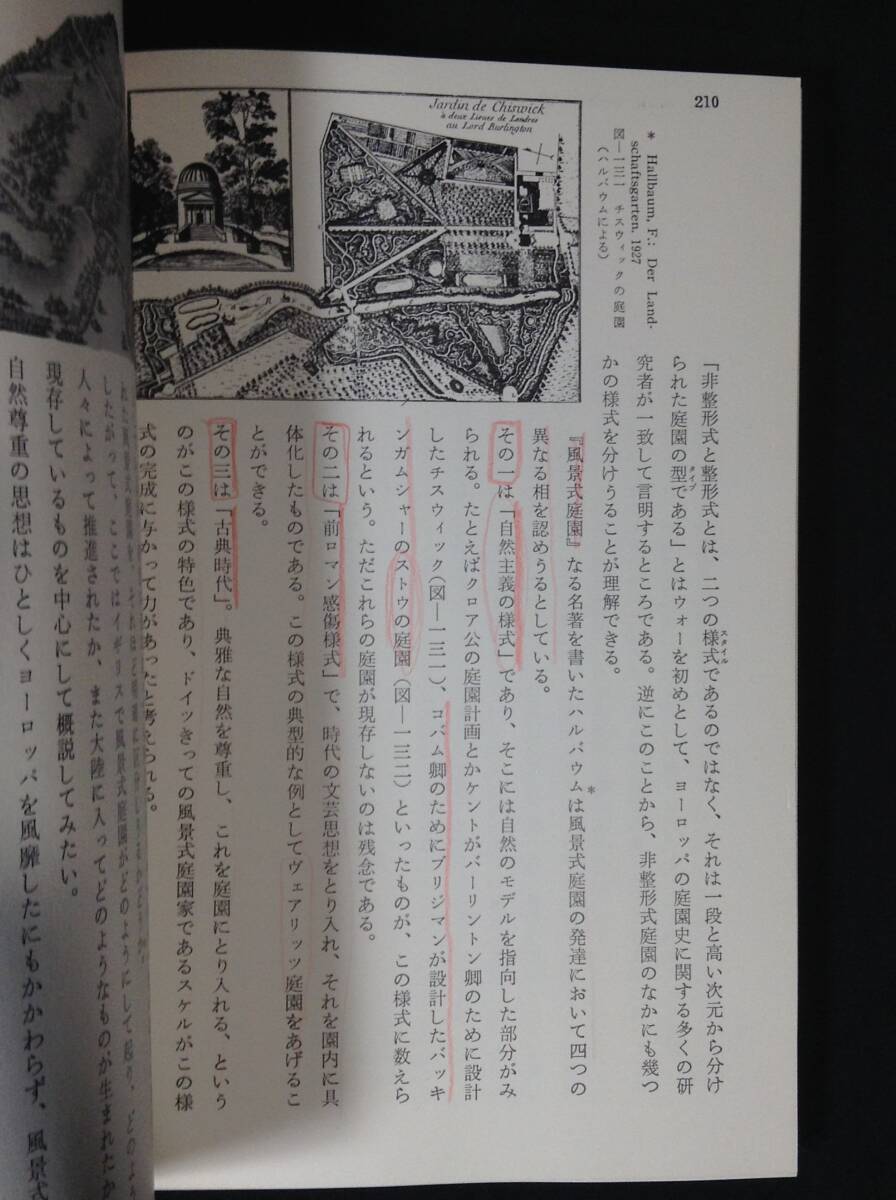 210
* Hallbaum, F.: Der Land-
schaftsgarten. 1927
図—一三一 チスウィックの庭園
(ハルバウムによる)
Jardin de Chiswick
à deux Lieues de Londres
au Lord Burlington
「非整形式と整形式とは、二つの様式であるのではなく、それは一段と高い次元から分け
スタイル
られた庭園の型である」とはウォーを初めとして、ヨーロッパの庭園史に関する多くの研
タイプ
究者が一致して言明するところである。逆にこのことから、非整形式庭園のなかにも幾つ
かの様式を分けうることが理解できる。
『風景式庭園』なる名著を書いたハルバウム*は風景式庭園の発達において四つの
異なる相を認めうるとしている。
その一は「自然主義の様式」であり、そこには自然のモデルを指向した部分がみ
られる。たとえばクロア公の庭園計画とかケントがバーリントン卿のために設計
したチスウィック(図—一三一)、コバム卿のためにブリジマンが設計したバッキ
ンガムシャーのストウの庭園(図—一三二)といったものが、この様式に数えら
れるという。ただこれらの庭園が現存しないのは残念である。
その二は「前ロマン感傷様式」で、時代の文芸思想をとり入れ、それを園内に具
体化したものである。この様式の典型的な例としてヴェアリッツ庭園をあげるこ
とができる。
その三は「古典時代」。典雅な自然を尊重し、これを庭園にとり入れる、という
のがこの様式の特色であり、ドイツきっての風景式庭園家であるスケルがこの様
式の完成に与かって力があったと考えられる。
したがって、ここではイギリスで風景式庭園がどのようにして起り、どのよう
人々によって推進されたか、また大陸に入ってどのようなものが生まれたか
現存しているものを中心にして概説してみたい。
自然尊重の思想はひとしくヨーロッパを風靡したにもかかわらず、風景式